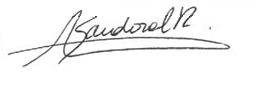 ASandoval R.